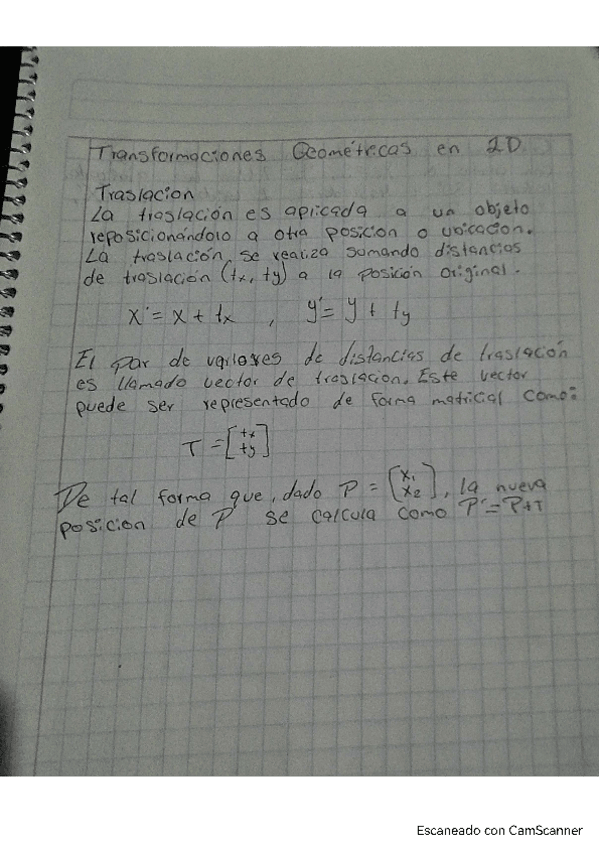 Transformaciones Geométricas en 2D
Traslacion
La traslación es aplicada a un objeto
reposicionándolo a otra posicion o ubicacion.
La traslación, se realiza sumando distancias
de traslación (tx, ty) a la posición original.
x' = x + tx , y' = y + ty
El par de varlores de distancias de traslación
es llamado vector de traslacion. Este vector
puede ser representado de forma matricial como:
T = [tx ty]
De tal forma que, dado P = [x1 x2], la nueva
posicion de P se calcula como P' = P+T
Escaneado con CamScanner